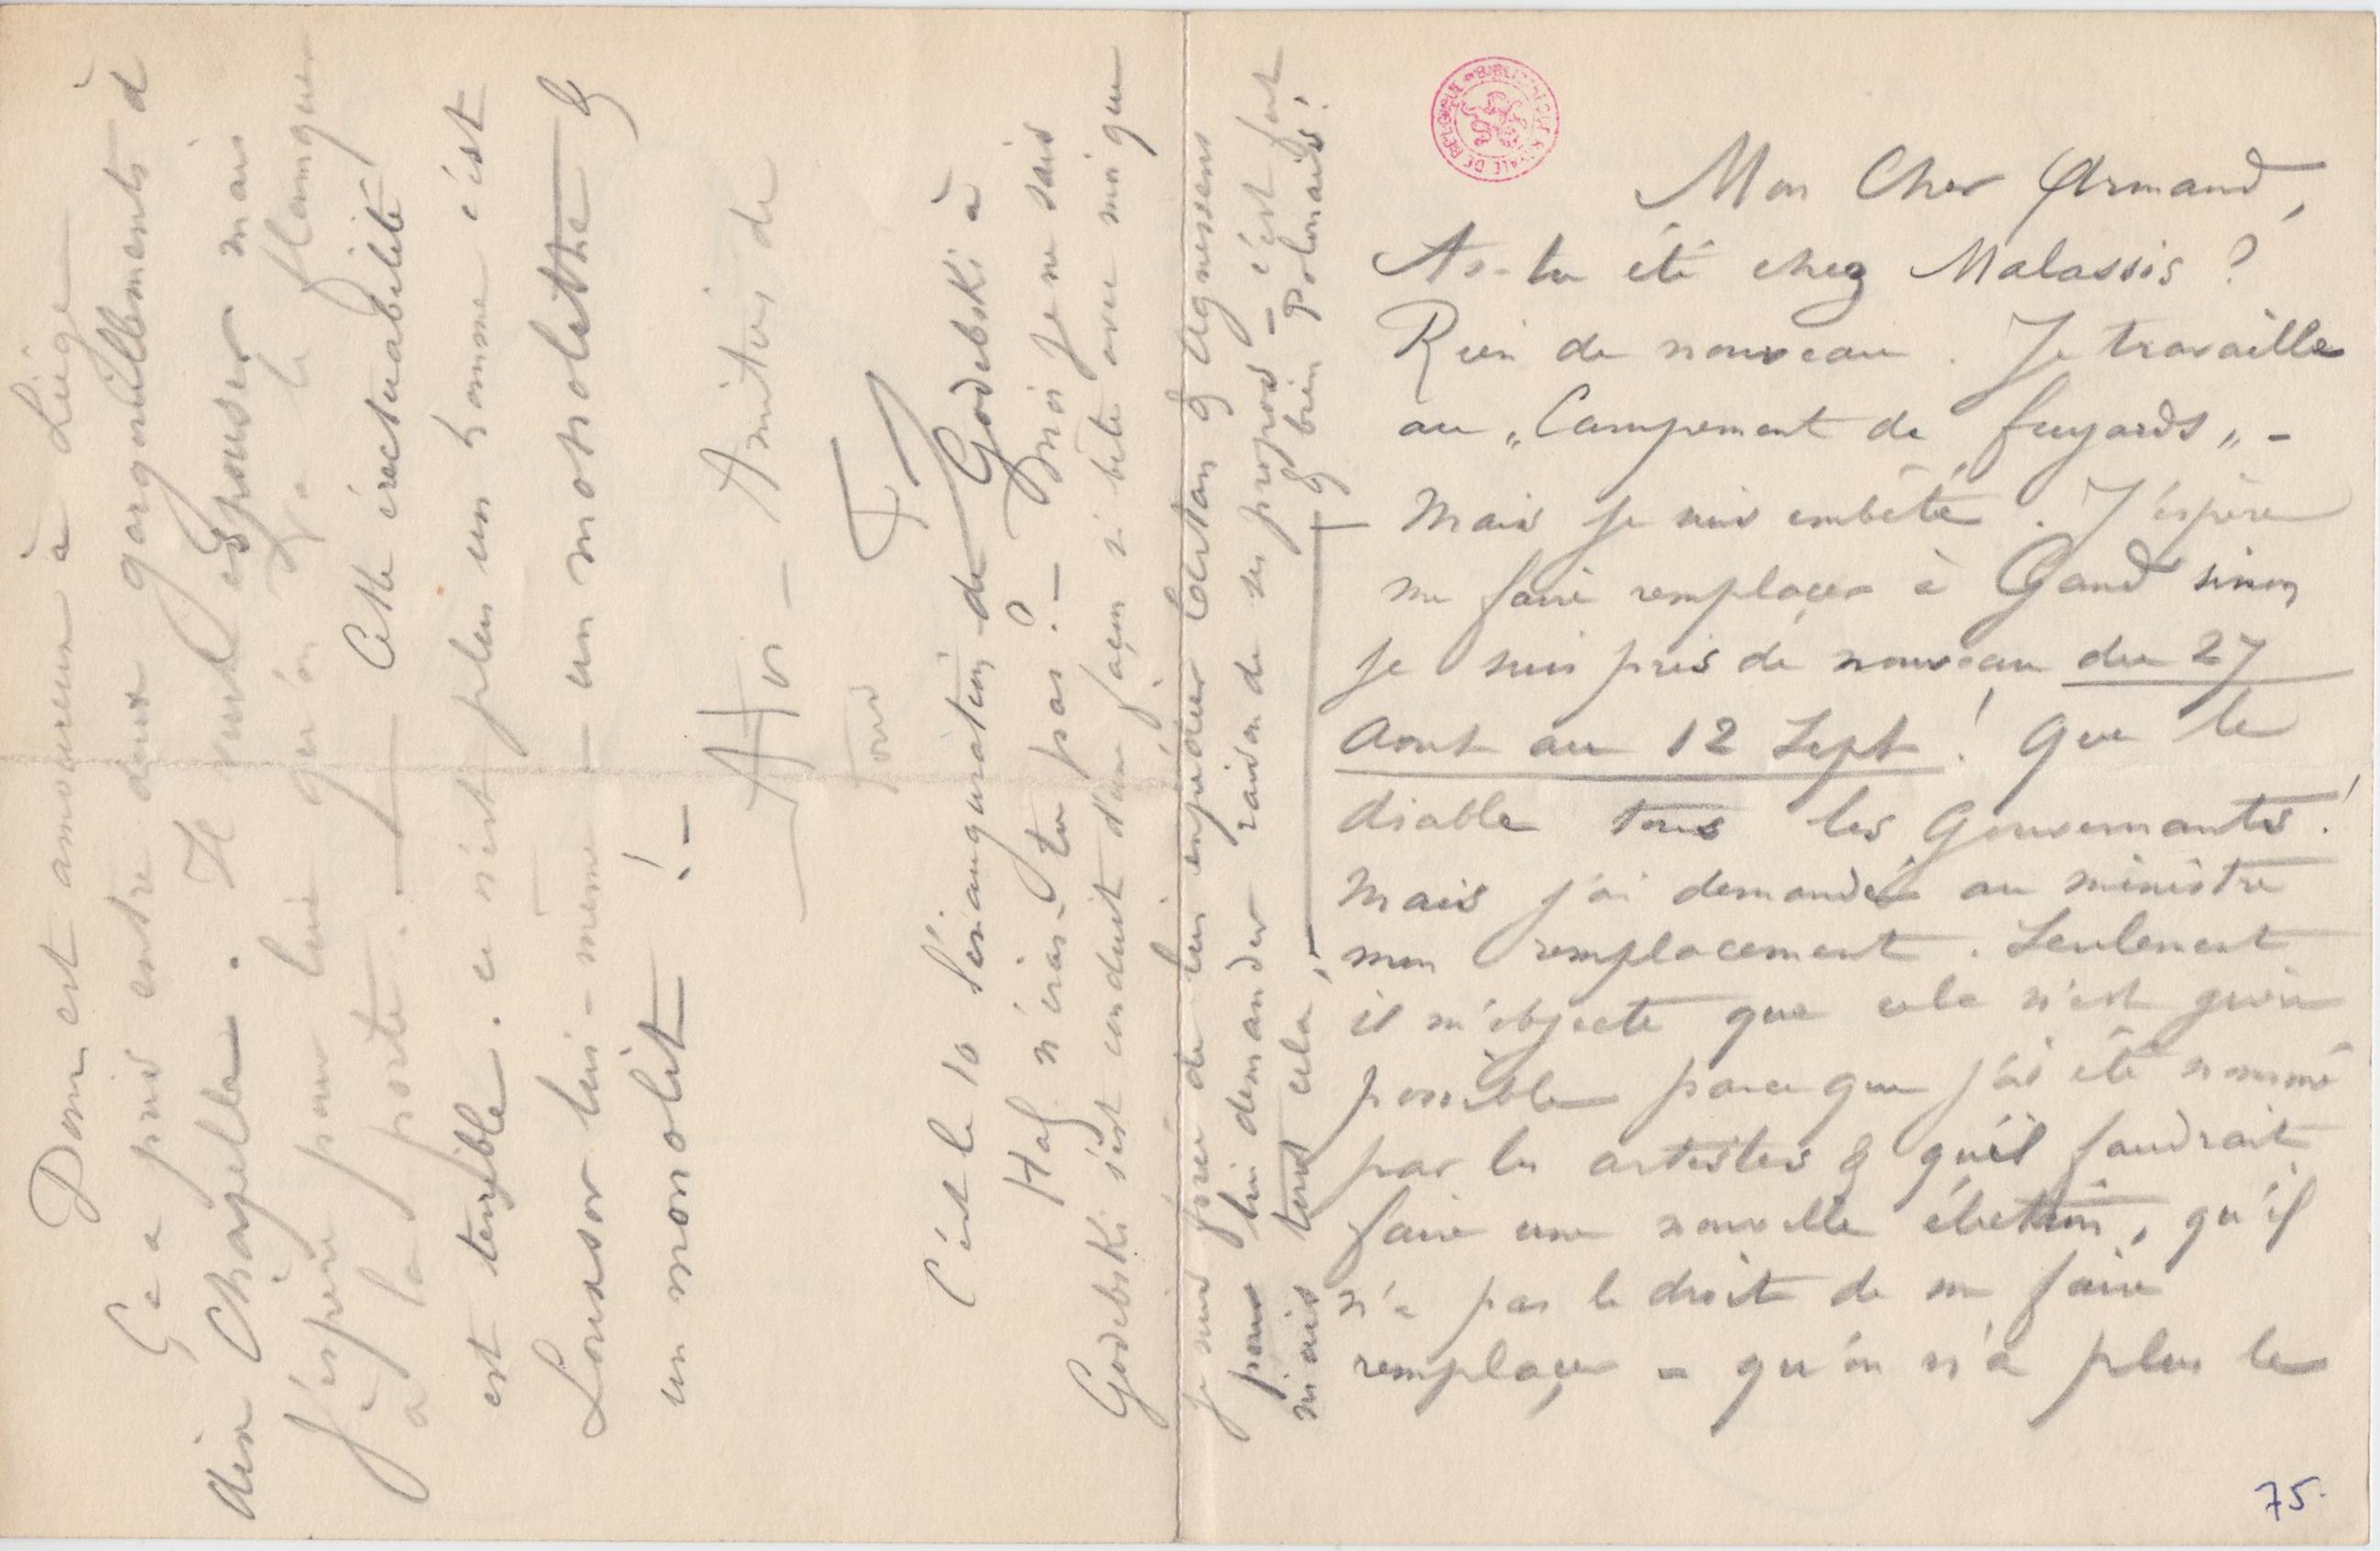 Mon Cher Armand,
As-tu été chez Malassis ?
Rien de nouveau. Je travaille
au „Campement de fuyards„ -
Mais je suis embêté. J'espère
me faire remplacer à Gand sinon
je suis pris de nouveau du 27
Aout au 12 Sept ! Que le
diable tous les Gouvernants !
Mais j'ai demandé au ministre
mon remplacement. Seulement
il m'objecte que cela n'est guère
possible parce que j'ai été nommé
par les artistes & qu'il faudrait
faire une nouvelle élection, qu'il
n'a pas le droit de me faire
remplacer - qu'on n'a plus le
75.
Dom est amoureux à Liège
Ça a pris entre deux gargouillements d'
Aix Chapelle. Il veut épouser mais
j'espère pour lui qu'on va le flanquer
à la porte. — Cette érectuabilité
est terrible. ce n'est plus un homme c'est
Lousor lui-même — un monolithe &
un monolit !-
— A toi — Amitiés de
tous
C'est le 10 l'inauguration de Godebski à
Hal n'iras-tu pas ? — Moi je ne sais
Godebski s'est conduit d'une façon si bête avec moi que
pour lui demander raison de ses propos - c'est fort
mais tout cela, — & bien polonais !
BIBLIOTHÈQUE ROYALE DE BELGIQUE